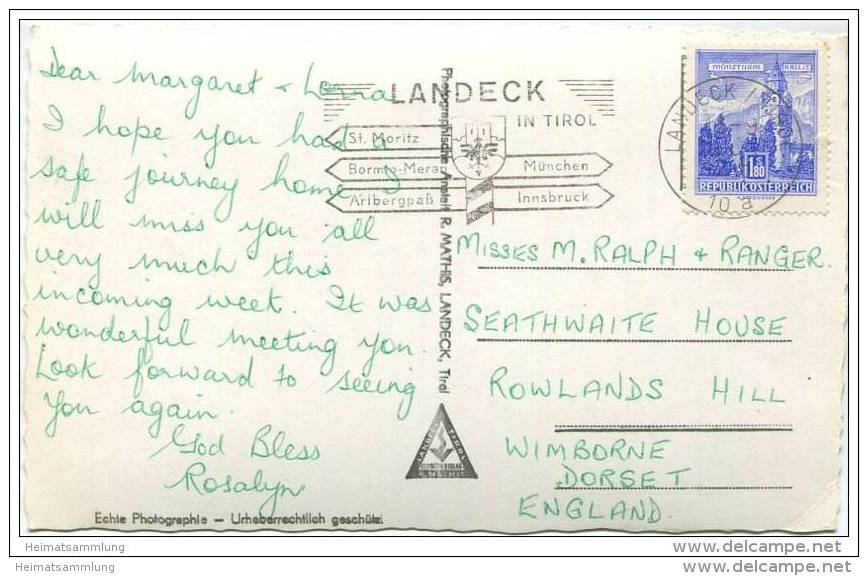 Dear Margaret + Lorna
I hope you had a
safe journey home I
will miss you all
very much this
incoming week. It was
wonderful meeting you.
Look forward to seeing
you again.
God Bless
Rosalyn
LANDECK
IN TIROL
St. Moritz
Bormio-Meran
Arlbergpaß
München
Innsbruck
MÜNZTURM HALL I.T.
1.80
REPUBLIK ÖSTERREICH
LANDECK
10 a
Photographische Anstalt R. MATHIS, LANDECK, Tirol
LANDECK TIROL
R. MATHIS
MISSES M. RALPH + RANGER.
SEATHWAITE HOUSE
ROWLANDS HILL
WIMBORNE
DORSET
ENGLAND.
Echte Photographie – Urheberrechtlich geschützt
Heimatsammlung
Heimatsammlung
www.delcampe.net
www.delcampe.net